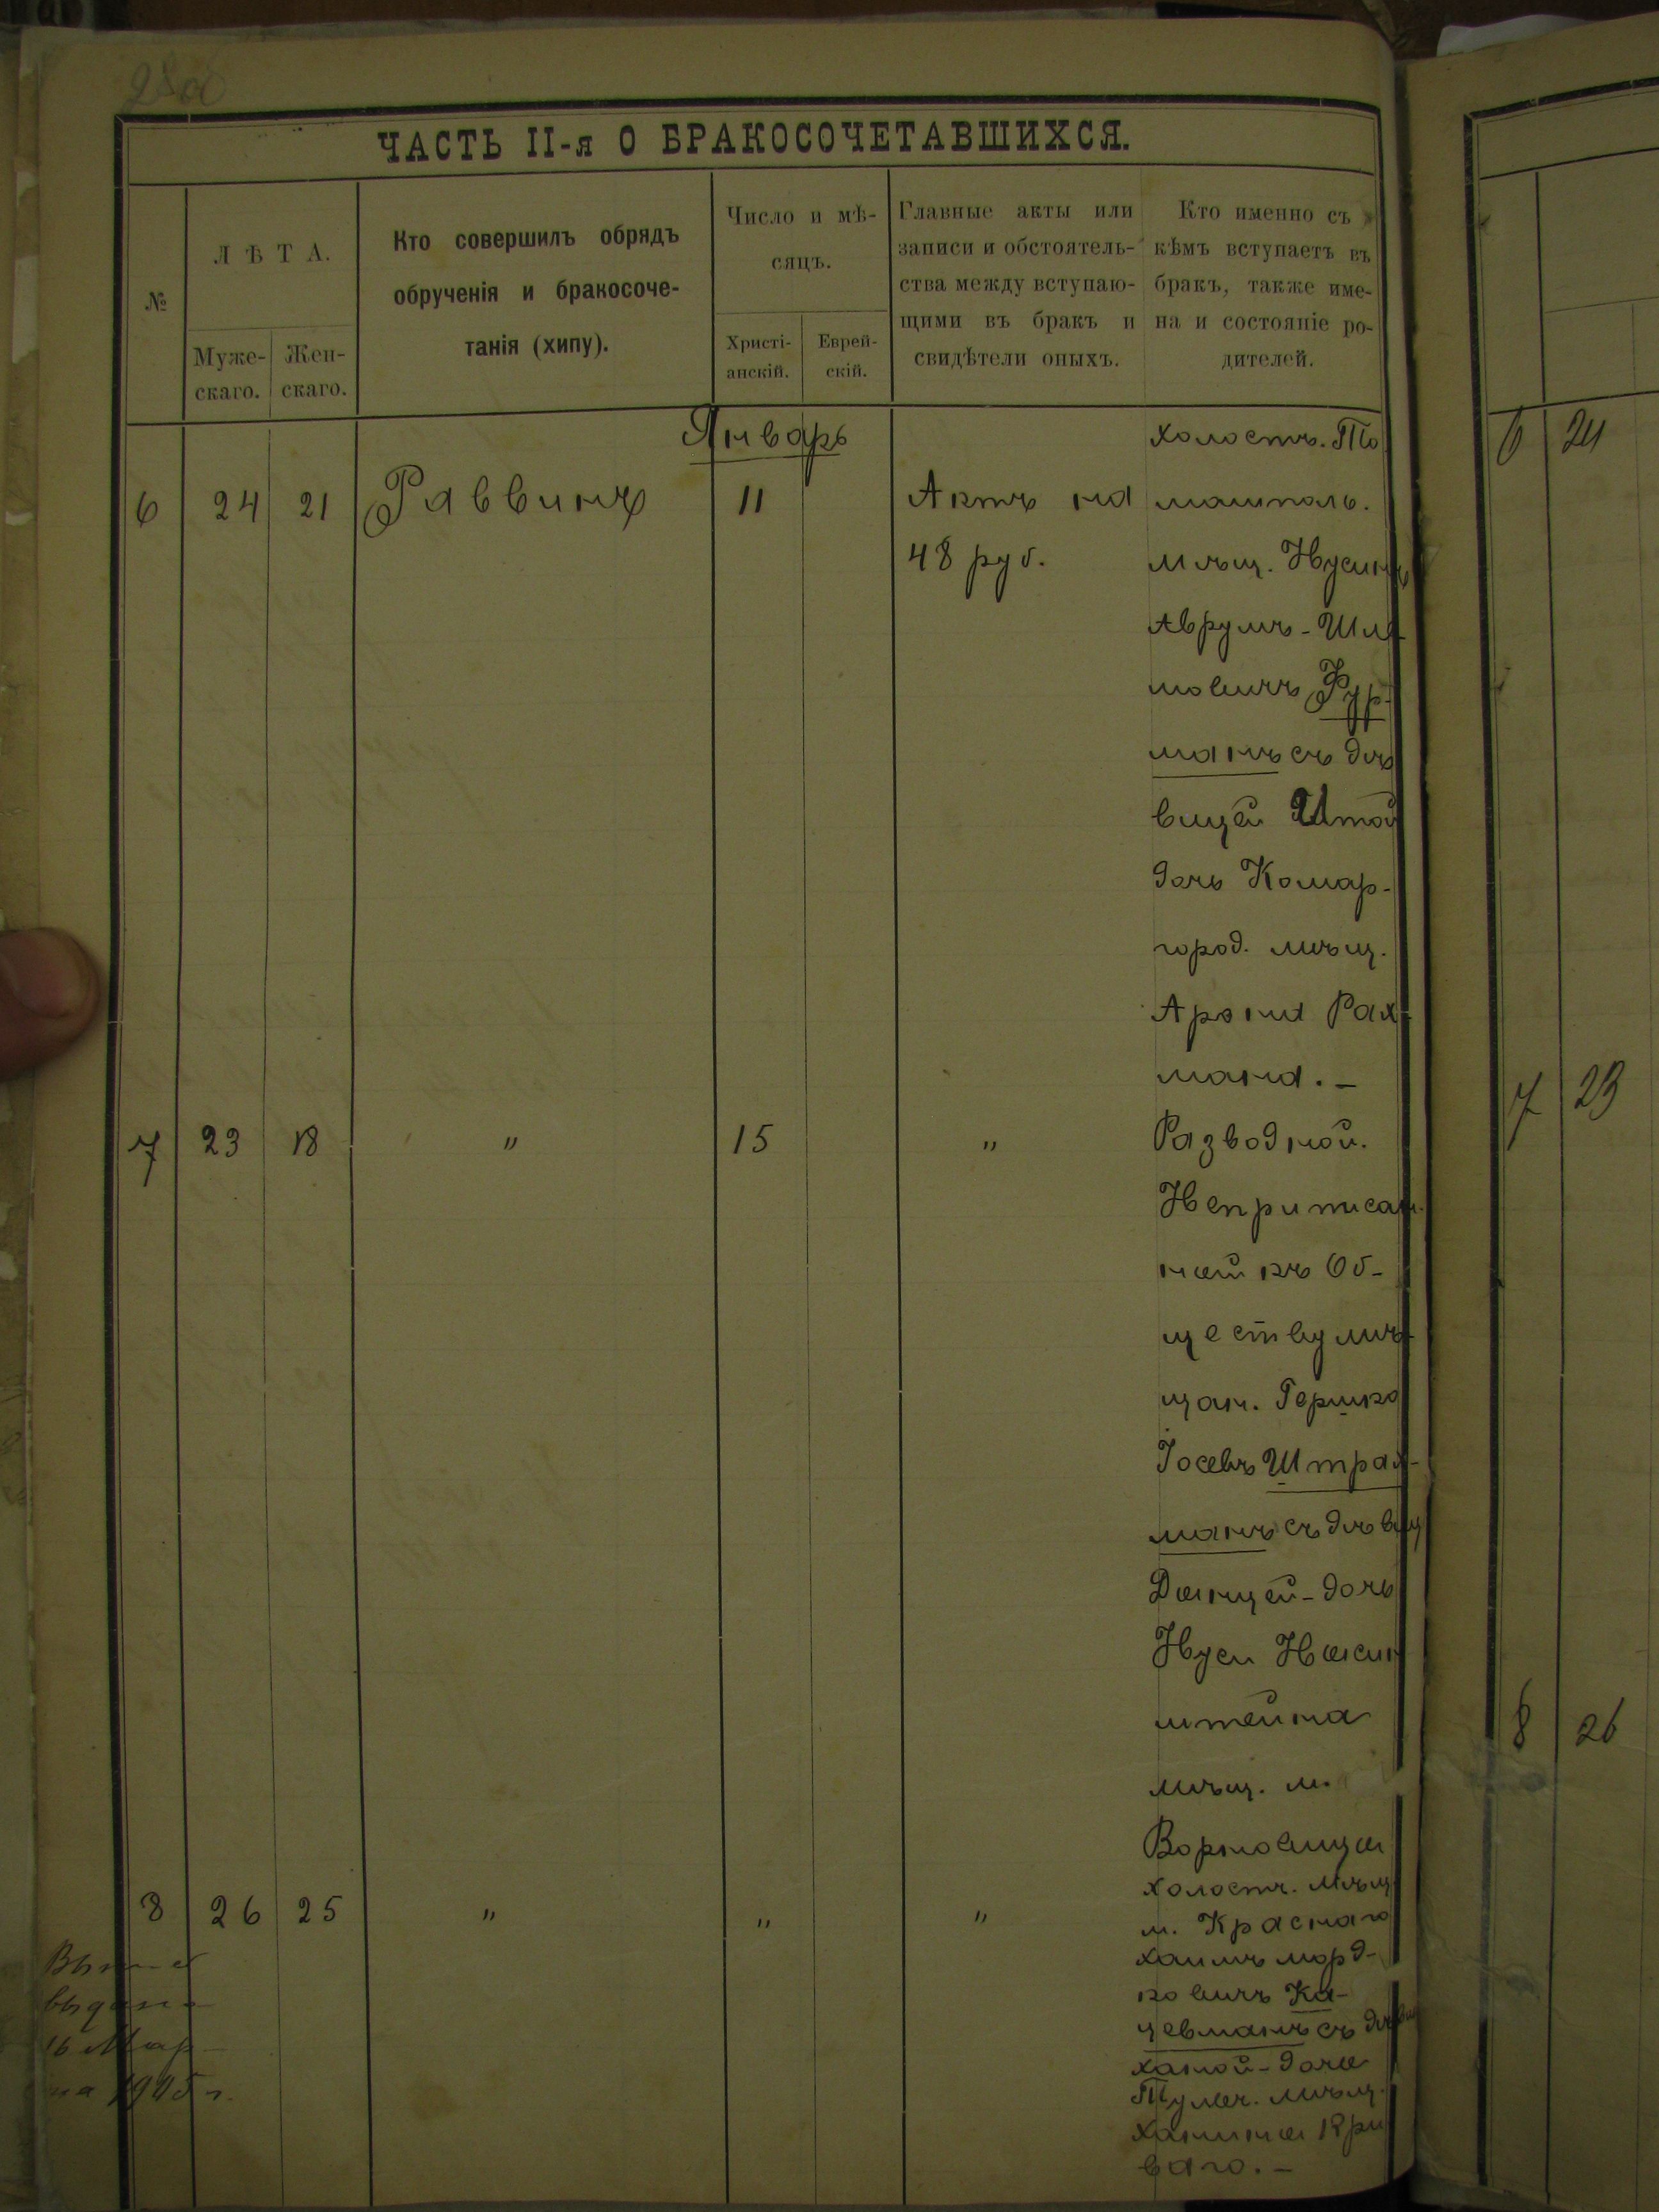 ЧАСТЬ II-я О БРАКОСОЧЕТАВШИХСЯ.
№
ЛѢТА.
Муже-
скаго.
Жен-
скаго.
Кто совершилъ обрядъ
обрученія и бракосоче-
танія (хипу).
Число и мѣ-
сяцъ.
Христі-
анскій.
Еврей-
скій.
Главные акты или
записи и обстоятель-
ства между вступаю-
щими въ бракъ и
свидѣтели оныхъ.
Кто именно съ
кѣмъ вступаетъ въ
бракъ, также име-
на и состояніе ро-
дителей.
Январь
6 24 21 Раввинъ 11 Актъ на
48 руб.
холостъ. То
машполь.
мѣщ. Нусинъ
Аврумъ-Шлі
мовичъ Фур-
манъ съ дѣ
вицей Итой
дочь Комар-
город. мѣщ.
Арона Рах-
мана.-
7 23 18 " 15 "
Разводной.
Неприписан-
ной къ Об-
ществу мѣ-
щан. Гершко
Іосевъ Штрах-
манъ съ дѣвиц
Данцей-дочь
Нуси
штейна
мѣщ. м.
8 26 25 " " "
холостъ. мѣщ
м. Краснаго
Хаимъ Морд-
ковичъ Ка-
цевманъ съ дѣви
Ханой-дочь
Тульч. мѣщ.
Кри
ваго.-
16 Мар
6 24
7 23
8 26